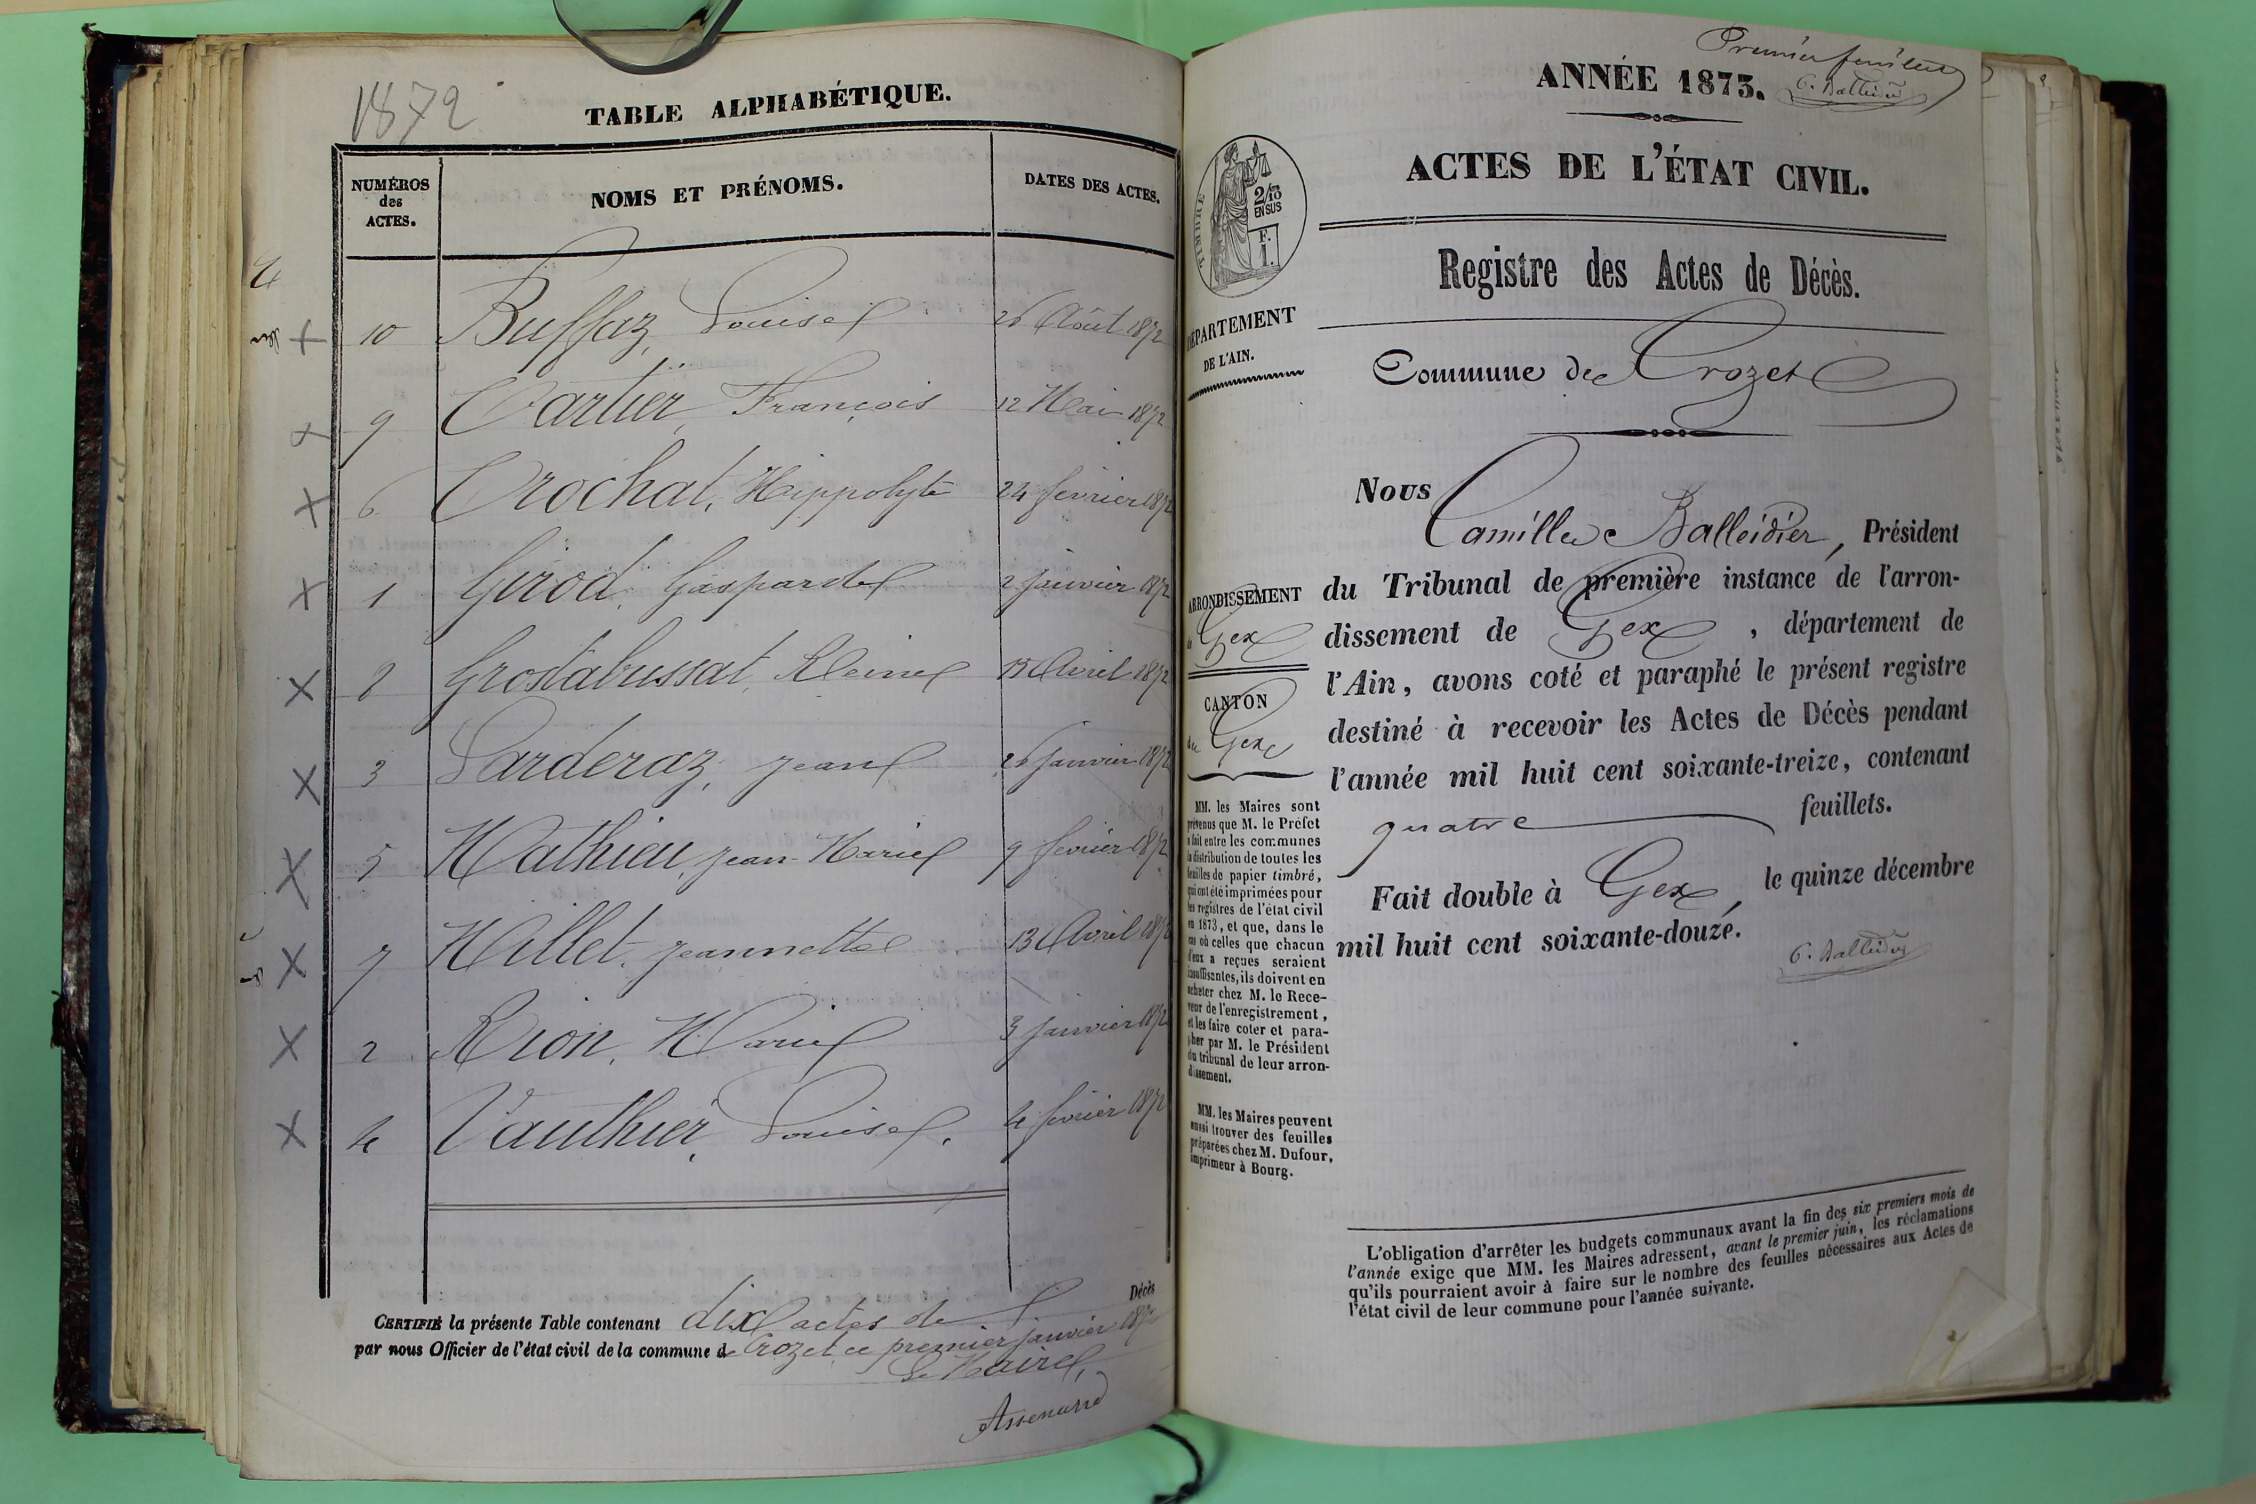 1872
TABLE ALPHABÉTIQUE.
NUMÉROS
des
ACTES.
NOMS ET PRÉNOMS.
DATES DES ACTES.
10 Buffaz, Louise 26 Août 1872
9 Cartier, François 12 Mai 1872
6 Crochat, Hippolyte 24 février 1872
1 Girod, Gasparde 2 janvier 1872
8 Grostabussat, Reine 15 Avril 1872
3 Larderaz, Jean 26 janvier 1872
5 Mathieu, Jean-Marie 9 février 1872
7 Millet, Jeannette 13 Avril 1872
2 Rion, Marie 3 janvier 1872
4 Vauthier, Louise. 4 février 1872
CERTIFIÉ la présente Table contenant dix actes de Décès
par nous Officier de l'état civil de la commune de Crozet ce premier janvier 187
Le Maire,
Premier feuillet
ANNÉE 1873.
C. Balleidier
ACTES DE L'ÉTAT CIVIL.
TIMBRE
2/10
EN SUS
F.
1.
Registre des Actes de Décès.
DÉPARTEMENT
DE L'AIN.
Commune de Crozet
Nous
Camille Balleidier, Président
du Tribunal de première instance de l'arron-
dissement de Gex, département de
l'Ain, avons coté et paraphé le présent registre
destiné à recevoir les Actes de Décès pendant
l'année mil huit cent soixante-treize, contenant
quatre feuillets.
Fait double à Gex, le quinze décembre
mil huit cent soixante-douze.
C. Balleidier
ARRONDISSEMENT
de Gex
CANTON
de Gex
MM. les Maires sont
prévenus que M. le Préfet
a fait entre les communes
la distribution de toutes les
feuilles de papier timbré,
qui ont été imprimées pour
les registres de l'état civil
en 1873, et que, dans le
cas où celles que chacun
d'eux a reçues seraient
insuffisantes, ils doivent en
acheter chez M. le Rece-
veur de l'enregistrement,
et les faire coter et para-
pher par M. le Président
du tribunal de leur arron-
dissement.
MM. les Maires peuvent
aussi trouver des feuilles
préparées chez M. Dufour,
imprimeur à Bourg.
L'obligation d'arrêter les budgets communaux avant la fin des six premiers mois de
l'année exige que MM. les Maires adressent, avant le premier juin, les réclamations
qu'ils pourraient avoir à faire sur le nombre des feuilles nécessaires aux Actes de
l'état civil de leur commune pour l'année suivante.